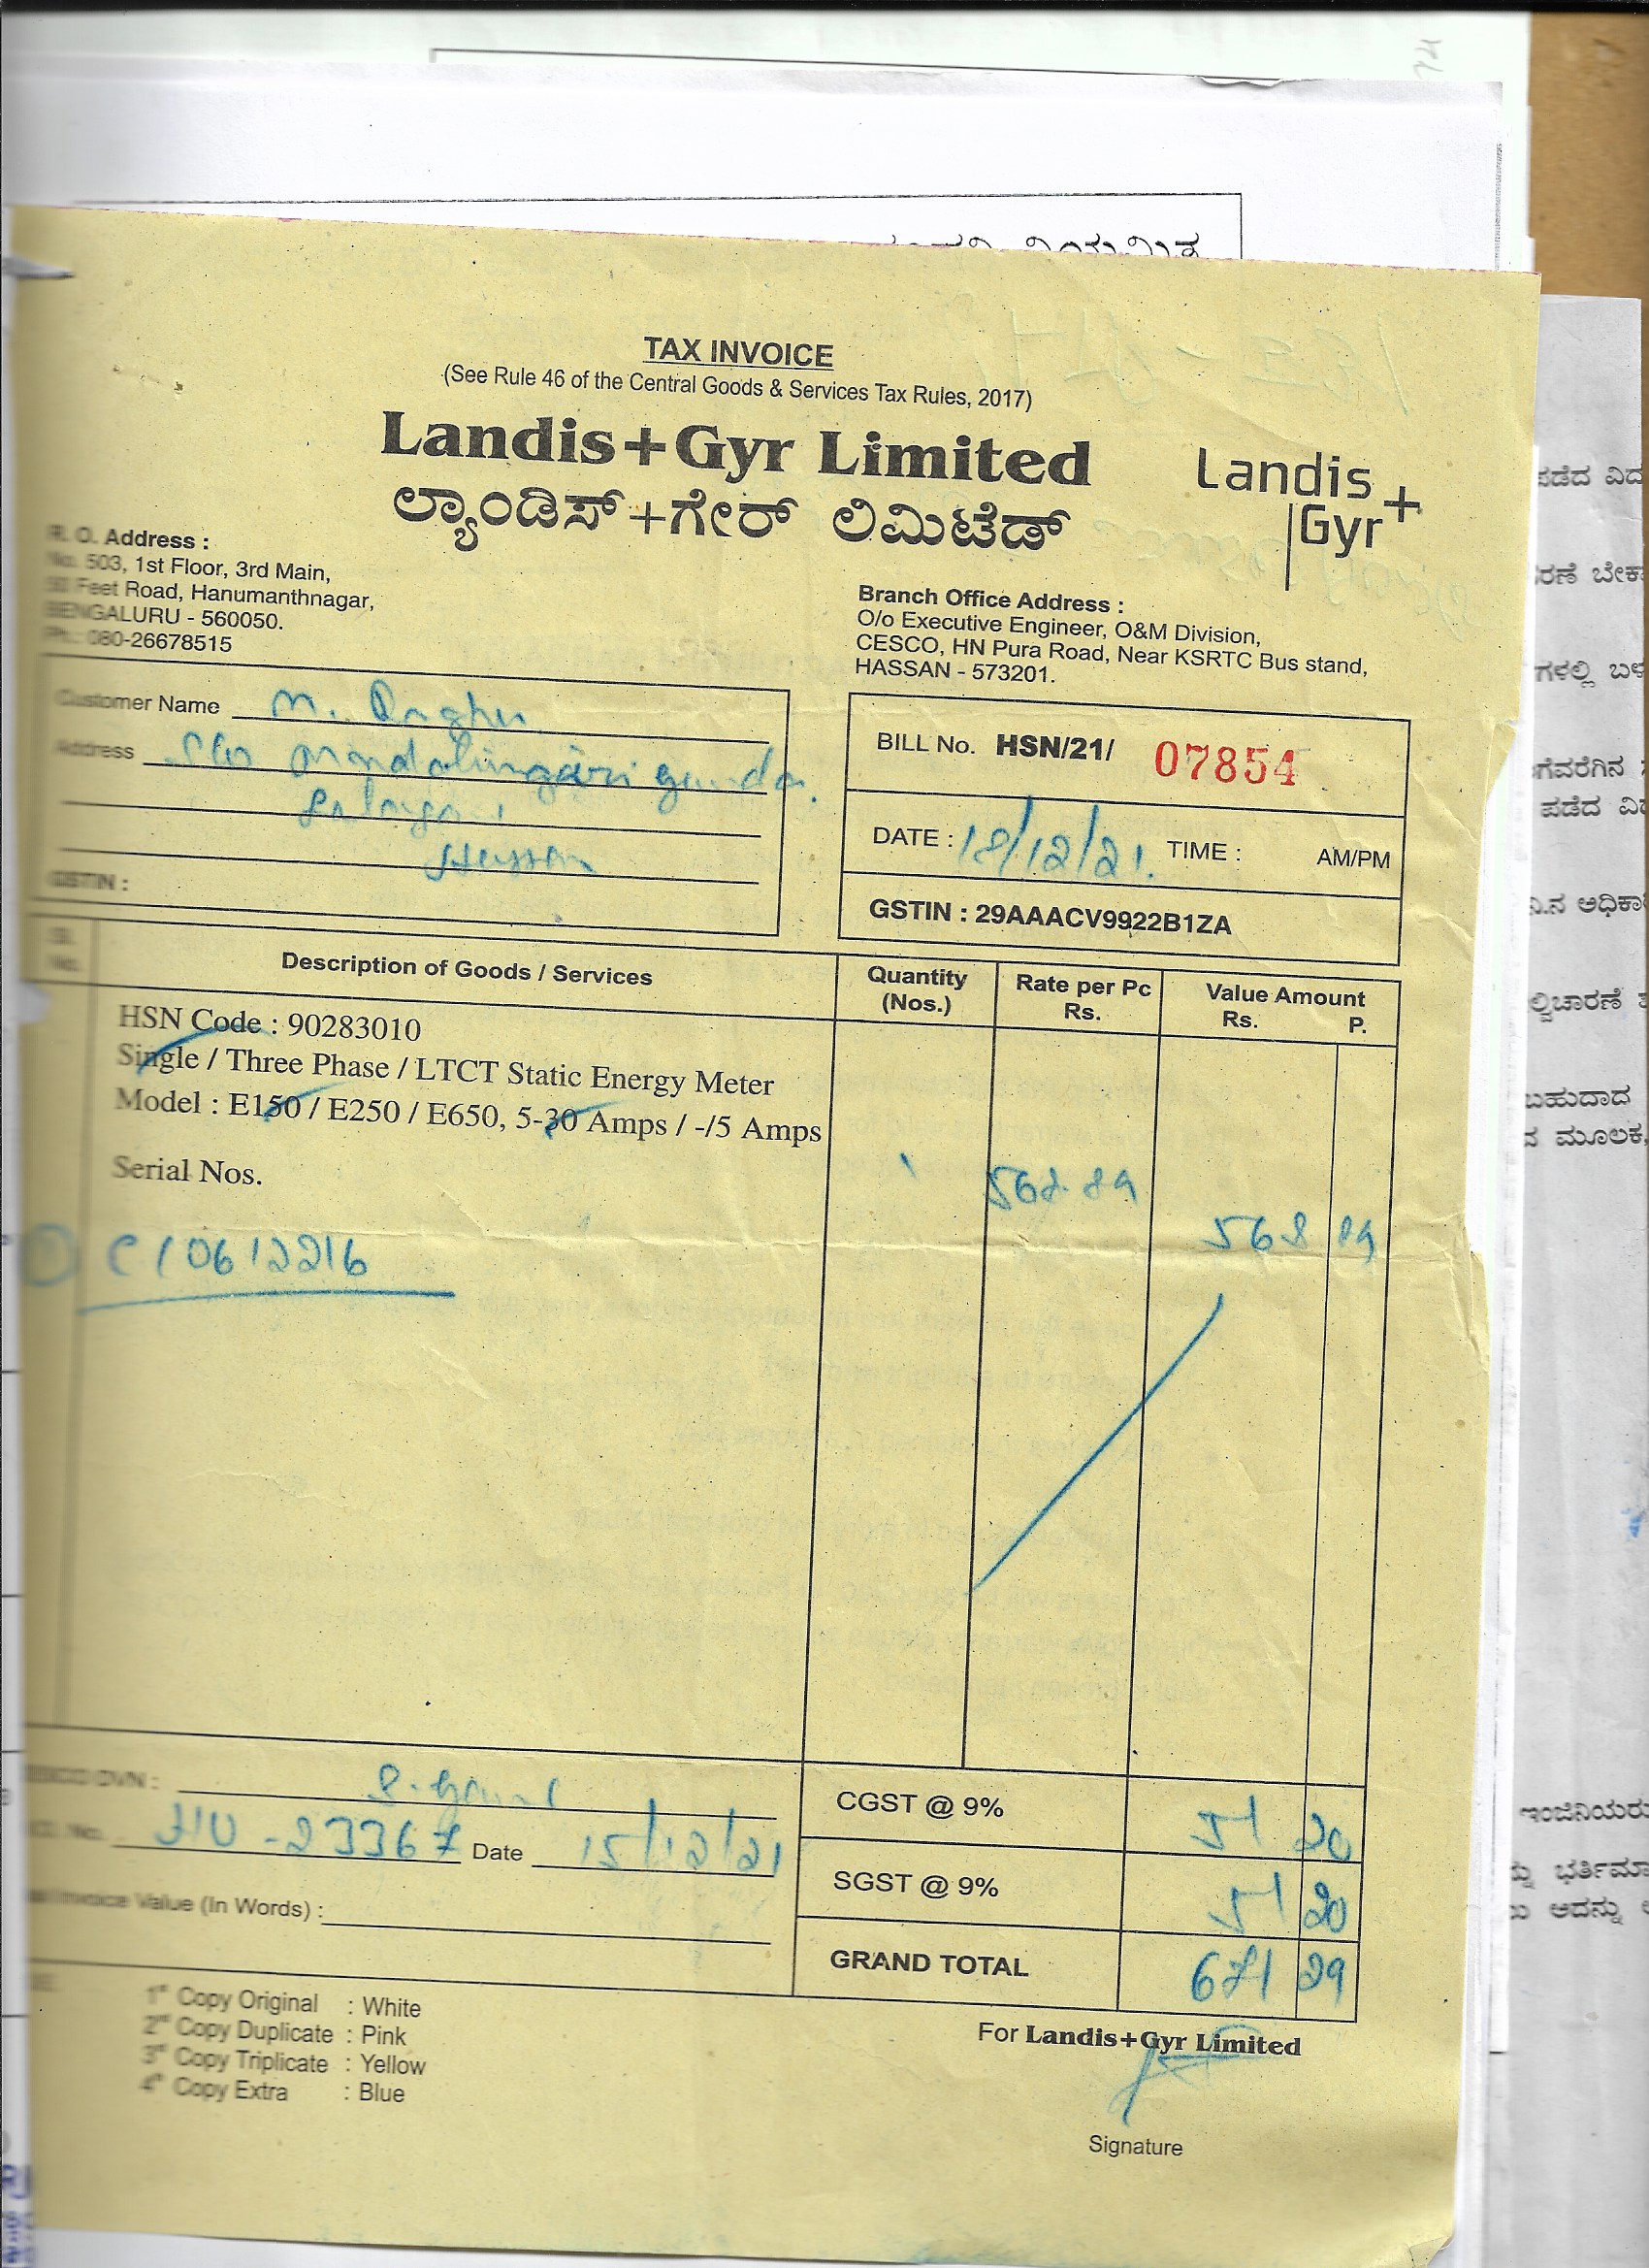 TAX INVOICE
(See Rule 46 of the Central Goods & Services Tax Rules, 2017)
Landis+Gyr Limited
ಲ್ಯಾಂಡಿಸ್+ಗೇರ್ ಲಿಮಿಟೆಡ್
Landis
Gyr+
R. O. Address :
No. 503, 1st Floor, 3rd Main,
50 Feet Road, Hanumanthnagar,
BENGALURU - 560050.
Ph.: 080-26678515
Branch Office Address :
O/o Executive Engineer, O&M Division,
CESCO, HN Pura Road, Near KSRTC Bus stand,
HASSAN - 573201.
Customer Name M. Raghu
Address S/o
Hassan
GSTIN :
BILL No. HSN/21/ 07854
DATE : 18/12/21. TIME : AM/PM
GSTIN : 29AAACV9922B1ZA
Sl. No. Description of Goods / Services Quantity (Nos.) Rate per Pc Rs. Value Amount Rs. P.
HSN Code : 90283010
Single / Three Phase / LTCT Static Energy Meter
Model : E150 / E250 / E650, 5-30 Amps / -/5 Amps
Serial Nos.
1 568.89
568 89
C10612216
DVN :
No. 23367 Date 15/12/21
Invoice Value (In Words) :
CGST @ 9% 51 20
SGST @ 9% 51 20
GRAND TOTAL 671 29
1st Copy Original : White
2nd Copy Duplicate : Pink
3rd Copy Triplicate : Yellow
4th Copy Extra : Blue
For Landis+Gyr Limited
Signature
ಪಡೆದ ವಿದ
ರಣೆ ಬೇಕಾ
ಗಳಲ್ಲಿ ಬಳ
ಗೆವರೆಗಿನ
ಪಡೆದ ವಿ
ನಿ.ನ ಅಧಿಕಾ
ಲ್ವಿಚಾರಣೆ
ಬಹುದಾದ
ದ ಮೂಲಕ,
ಇಂಜಿನಿಯರು
ಭರ್ತಿಮಾ
ಅದನ್ನು